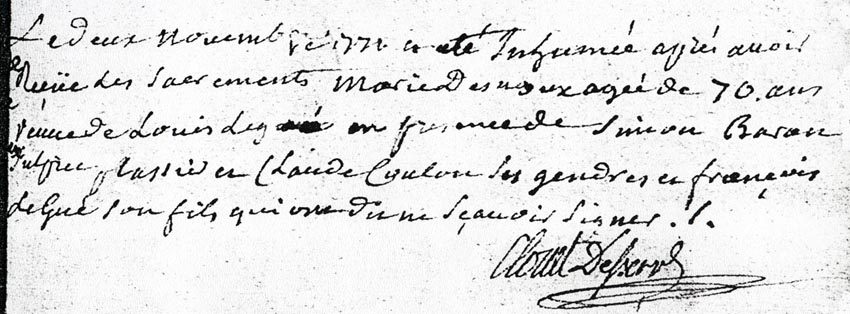 Le deux novembre 1771 a eté Inhumée aprés avoir
Reçüe les Sacrements Marie Desnoux agée de 70. ans
veuve de Louis Legué en presence de Simon Baron
Lassier et Claude Coulon ses gendres et françois
Legué son fils qui ont dit ne sçavoir signer ./.
Clouet Desserv